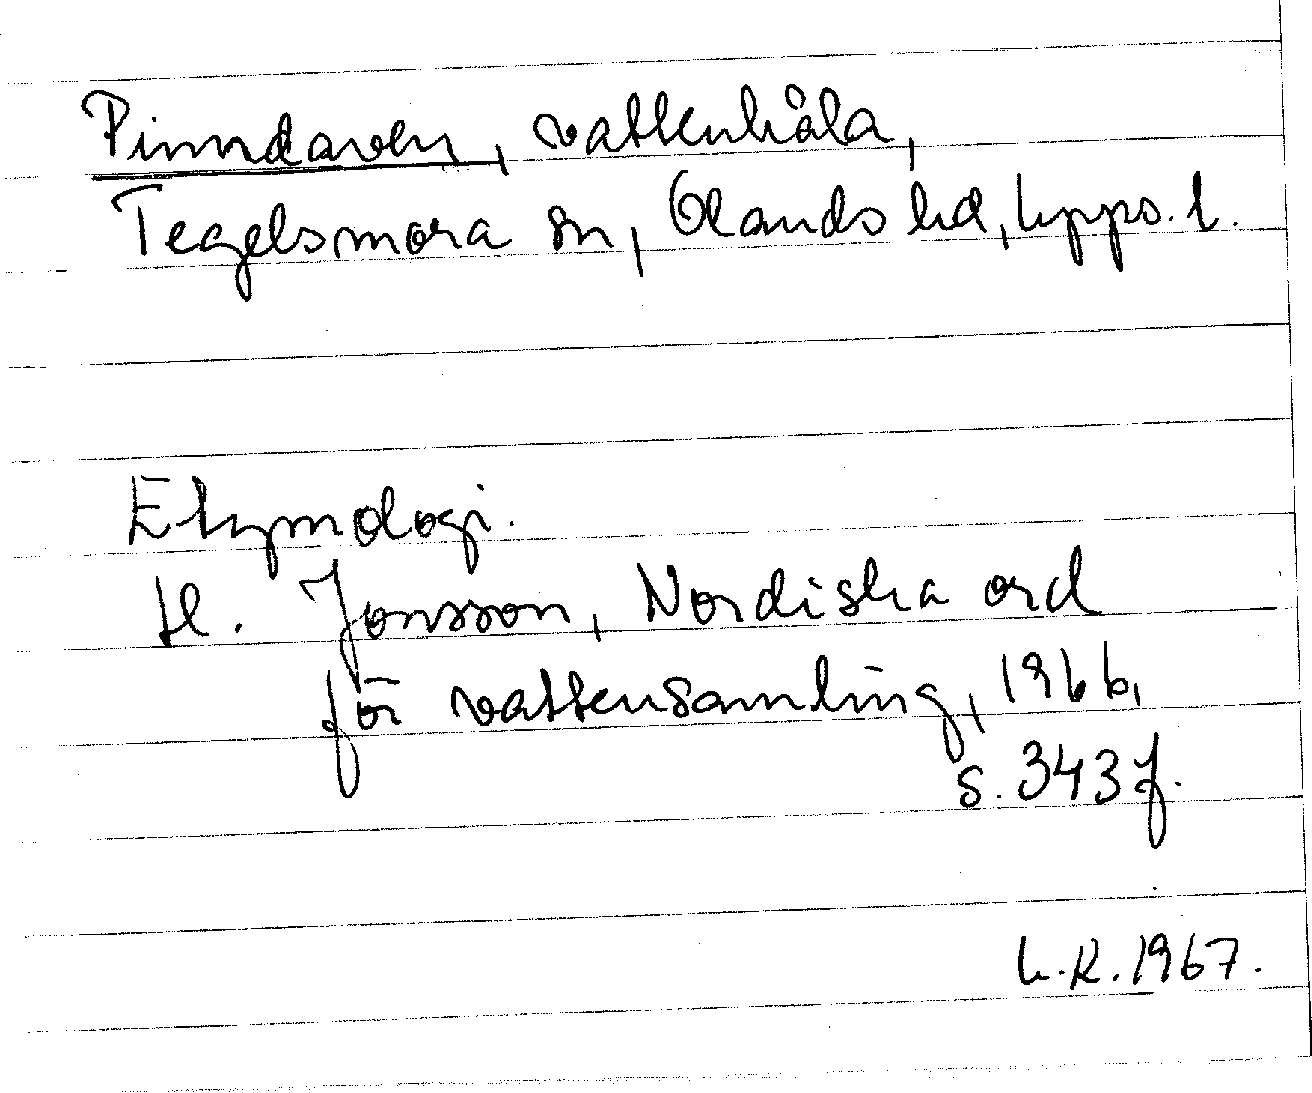 Pinndaven, vattenhåla,
Tegelsmora sn, Olands hd, Upps. l.
Etymologi.
H. Jonsson, Nordiska ord
för vattensamling, 1966,
s. 343 f.
L.R. 1967.